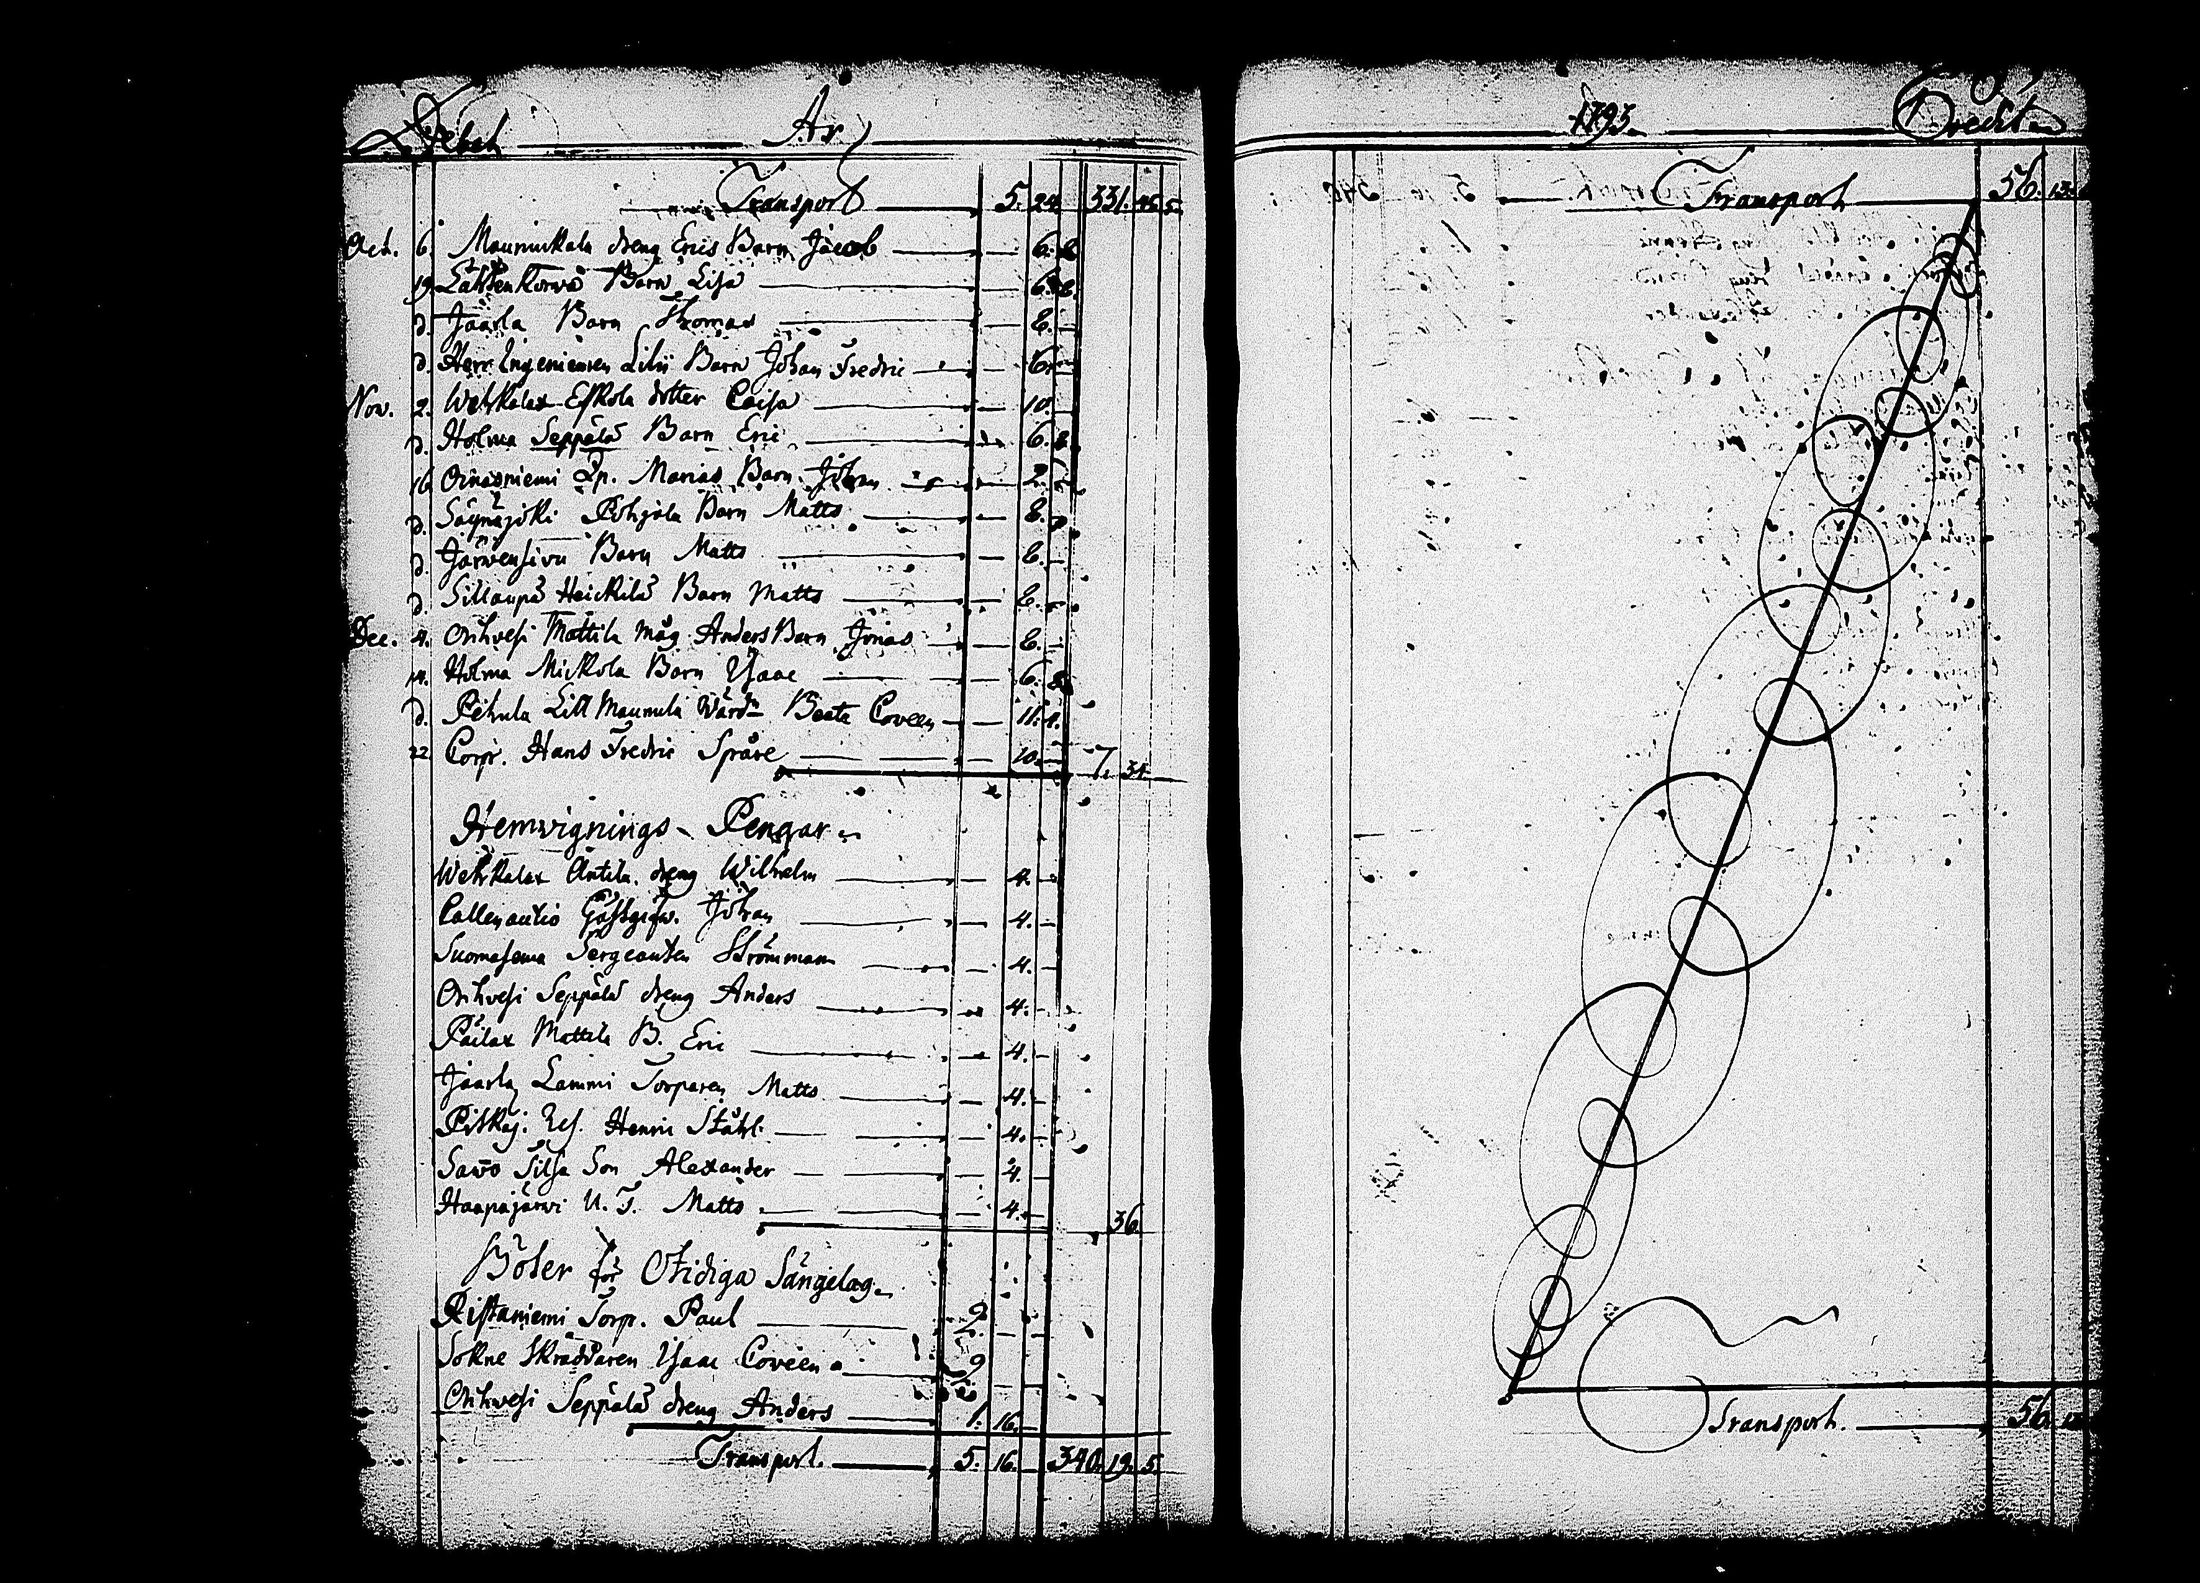 Debet År
Transport 5. 24. 331. 45. 5.
Oct. 6. Maunukala dreng Erics Barn Jacob 6. 8.
19. Lähtenkorwa Barn Lisa 6. 8.
d. Jaarla Barn Thomas 8.
d. Herr Ingenieuren Lihii Barn Johan Fredric 6.
Nov. 2. Wehkalax Eskola dotter Caisa 10.
d. Holma Seppälä Barn Eric 6. 8.
16. Oinasniemi Qp. Marias Barn Johan 2.
d. Säynäjoki Pohjola Barn Matts 8.
d. Järwensivu Barn Matts 8.
d. Sillanpä Heickilä Barn Matts 8.
Dec. 4. Orihvesi Mattila Måg Anders Barn Jonas 8.
14. Holma Mickola Barn Isaac 6. 8.
d. Pehula Lill Maunula Wärdn Beata Coveen 11. 4.
22. Corpr. Hans Fredric Spåre 10. 7. 34.
Hemvignings-Pengar
Wehkalax Antila dreng Wilhelm 4.
Callenautio Gästgifw. Johan 4.
Suomasema Sergeanten Strömman 4.
Orihvesi Seppälä dreng Anders 4.
Päilax Mattila B. Eric 4.
Jaarla Lammi Torparen Matts 4.
Pitkaj. Ref. Henric Ståhl 4.
Sawo Silja Son Alexander 4.
Haapajärwi U. S. Matts 4. 36.
Böter för Otidiga Sängelag
Ristaniemi Torp. Paul 2.
Sokne Skräddaren Isaac Coveen 2.
Orihwesi Seppälä dreng Anders 1. 16.
Transport. 5. 16. 340. 19. 5.
1793. Credit
Transport 56. 13.
Transport. 56.